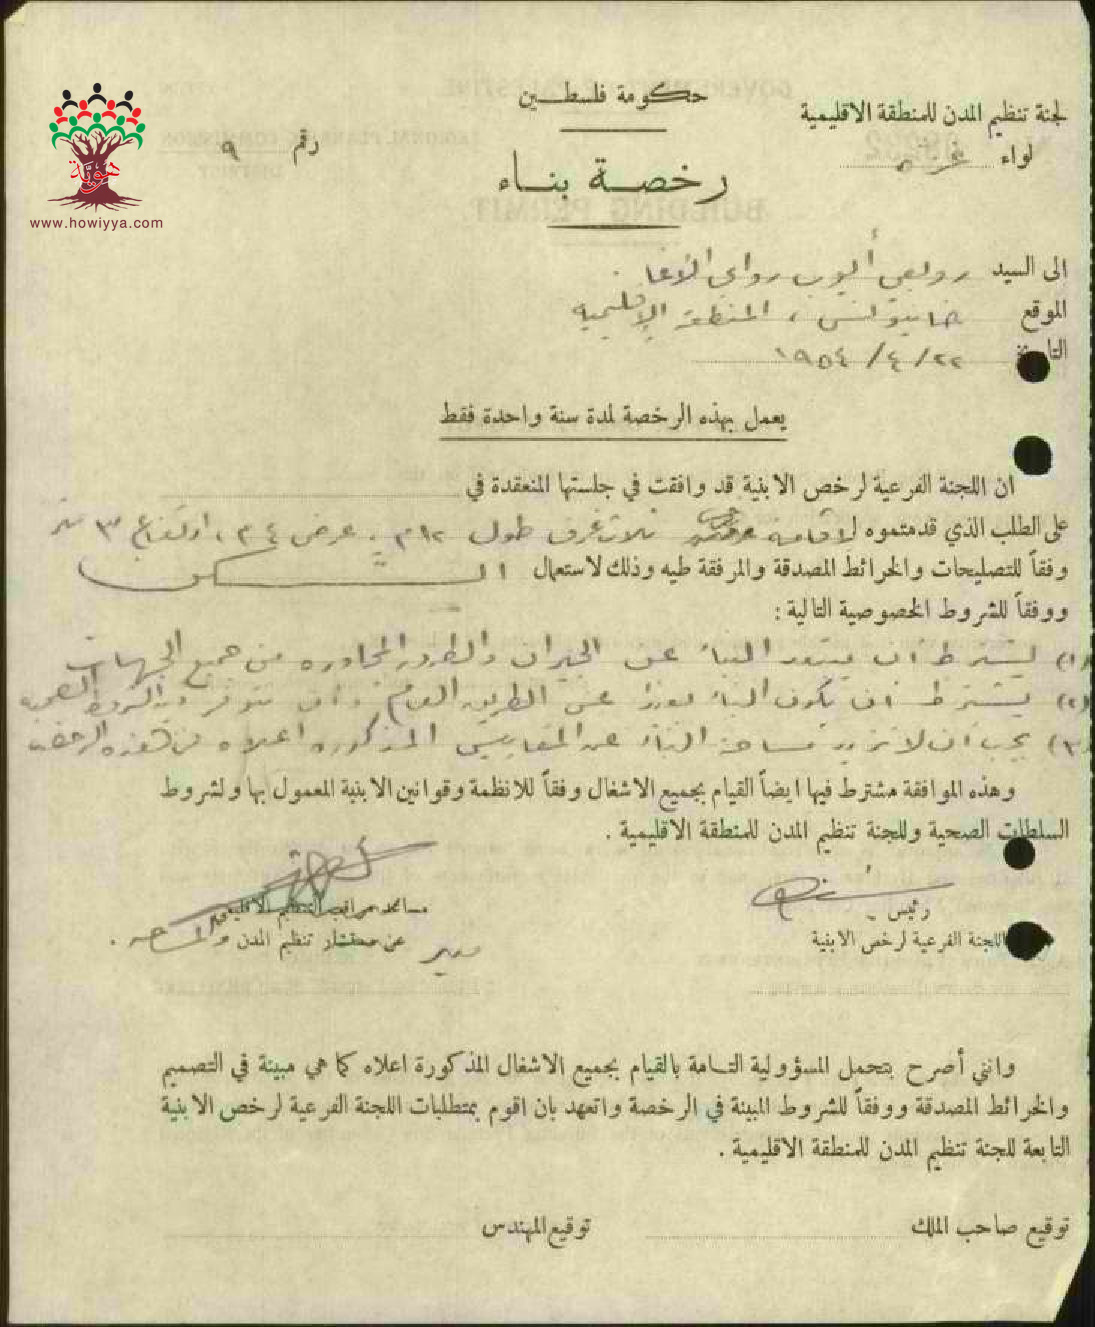 حكومة فلسطين
لجنة تنظيم المدن للمنطقة الاقليمية
لواء غزة
رقم ٩
رخصة بناء
هوية
www.howiyya.com
الى السيد أيوب الاغا
الموقع خانيونس ، المنطقة الإقليمية
التاريخ ٢٢/٤/١٩٥٤
يعمل بهذه الرخصة لمدة سنة واحدة فقط
ان اللجنة الفرعية لرخص الابنية قد وافقت في جلستها المنعقدة في
على الطلب الذي قدمتموه لاقامة ثلاث غرف طول ١٢م ، عرض ٤م ، ارتفاع ٣ متر
وفقاً للتصليحات والخرائط المصدقة والمرفقة طيه وذلك لاستعمال السكن
ووفقاً للشروط الخصوصية التالية :
(١) يشترط ان يبتعد البناء عن الجيران والطرق المجاوره من جميع الجهات
(٢) يشترط ان يكون البناء عن الطريق العام وان تتوفر الشروط الصحيه
(٣) يجب ان لا تزيد مساحة البناء عن المقاييس المذكوره اعلاه من هذه الرخصه
وهذه الموافقة مشترط فيها ايضاً القيام بجميع الاشغال وفقاً للانظمة وقوانين الابنية المعمول بها ولشروط
السلطات الصحية وللجنة تنظيم المدن للمنطقة الاقليمية .
رئيس
اللجنة الفرعية لرخص الابنية
مساعد مراقب التنظيم الاقليمي
مدير عن مستشار تنظيم المدن والمساحه .
وانني أصرح بتحمل المسؤولية التامة بالقيام بجميع الاشغال المذكورة اعلاه كما هي مبينة في التصميم
والخرائط المصدقة ووفقاً للشروط المبينة في الرخصة واتعهد بان اقوم بمتطلبات اللجنة الفرعية لرخص الابنية
التابعة للجنة تنظيم المدن للمنطقة الاقليمية .
توقيع صاحب الملك
توقيع المهندس